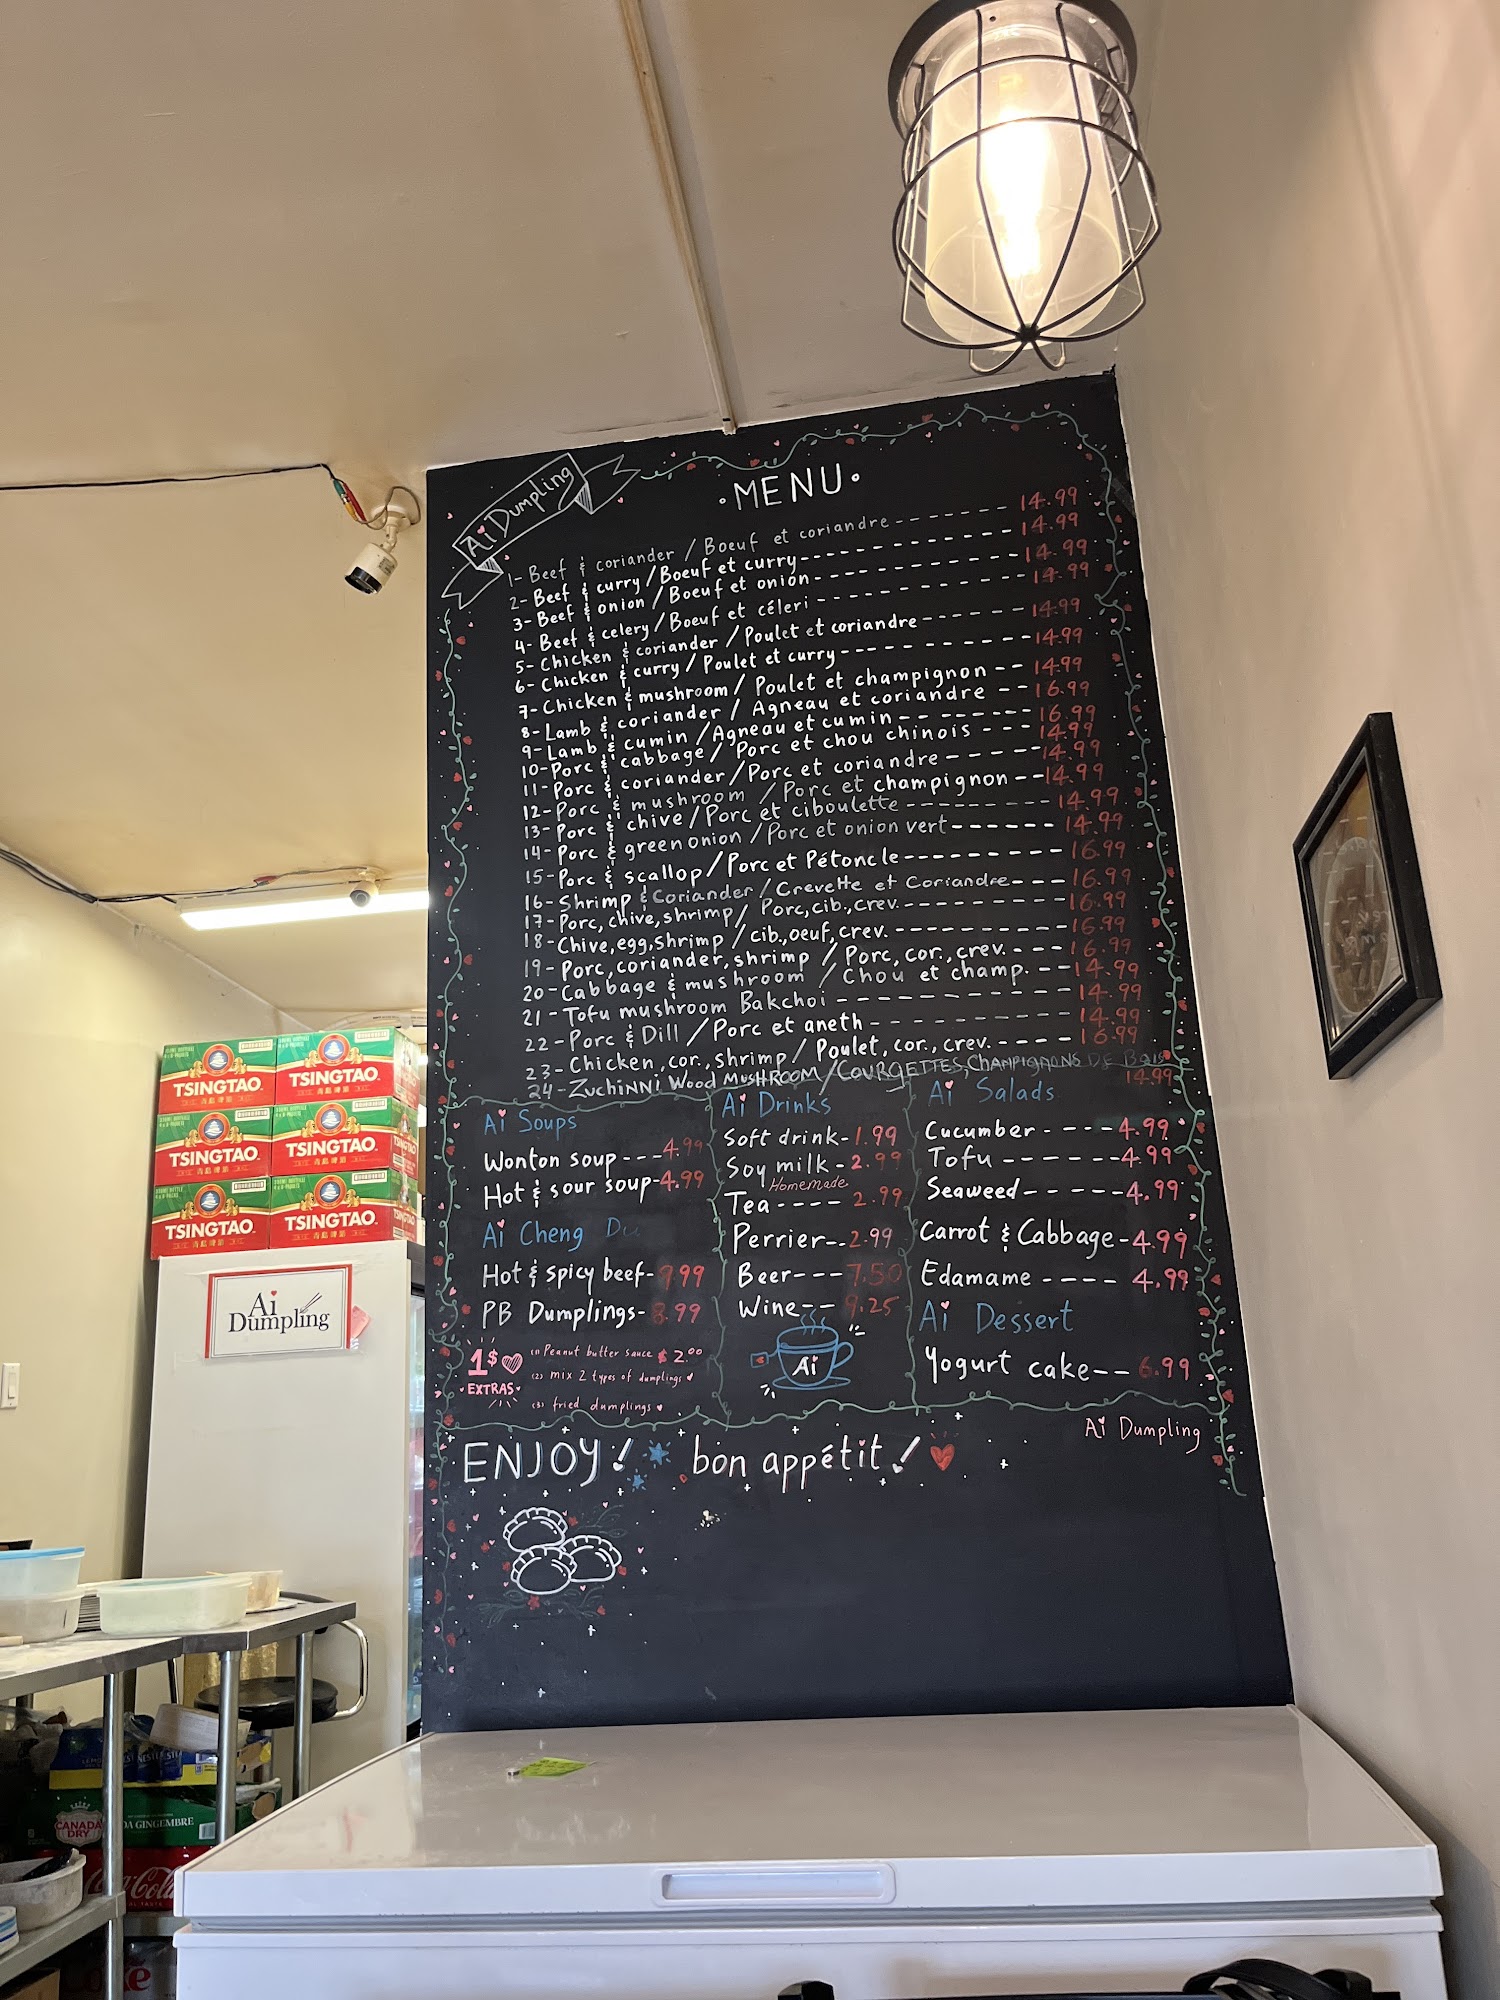 Ai Dumpling
MENU
1- Beef & coriander / Boeuf et coriandre ------- 14.99
2- Beef & curry / Boeuf et curry ------------ 14.99
3- Beef & onion / Boeuf et onion ----------- 14.99
4- Beef & celery / Boeuf et céleri ----------- 14.99
5- Chicken & coriander / Poulet et coriandre ------ 14.99
6- Chicken & curry / Poulet et curry --------- 14.99
7- Chicken & mushroom / Poulet et champignon -- 14.99
8- Lamb & coriander / Agneau et coriandre -- 16.99
9- Lamb & cumin / Agneau et cumin -------- 16.99
10- Porc & cabbage / Porc et chou chinois --- 14.99
11- Porc & coriander / Porc et coriandre ----- 14.99
12- Porc & mushroom / Porc et champignon -- 14.99
13- Porc & chive / Porc et ciboulette --------- 14.99
14- Porc & green onion / Porc et onion vert ------ 14.99
15- Porc & scallop / Porc et Pétoncle --------- 16.99
16- Shrimp & Coriander / Crevette et Coriandre --- 16.99
17- Porc, chive, shrimp / Porc, cib., crev. ---------- 16.99
18- Chive, egg, shrimp / cib., oeuf, crev. ---------- 16.99
19- Porc, coriander, shrimp / Porc, cor., crev. ---- 16.99
20- Cabbage & mushroom / Chou et champ. -- 14.99
21- Tofu mushroom Bakchoi ------------ 14.99
22- Porc & Dill / Porc et aneth ---------- 14.99
23- Chicken, cor., shrimp / Poulet, cor., crev. ----- 16.99
24- Zuchinni Wood MUSHROOM / COURGETTES, CHAMPIGNONS DE Bois 14.99
Ai Soups
Wonton soup --- 4.99
Hot & sour soup- 4.99
Ai Cheng Du
Hot & spicy beef- 9.99
PB Dumplings- 8.99
1$
EXTRAS
(1) Peanut butter sauce $ 2.00
(2) mix 2 types of dumplings
(3) fried dumplings
Ai Drinks
Soft drink- 1.99
Soy milk - 2.99
Homemade
Tea ---- 2.99
Perrier-- 2.99
Beer--- 7.50
Wine-- 9.25
Ai
Ai Salads
Cucumber ---- 4.99
Tofu ------ 4.99
Seaweed ----- 4.99
Carrot & Cabbage- 4.99
Edamame ---- 4.99
Ai Dessert
Yogurt cake-- 6.99
Ai Dumpling
ENJOY! bon appétit!
TSINGTAO
TSINGTAO
TSINGTAO
TSINGTAO
TSINGTAO
TSINGTAO
Ai
Dumpling
CANADA
DRY
DA GINGEMBRE
Coca-Cola